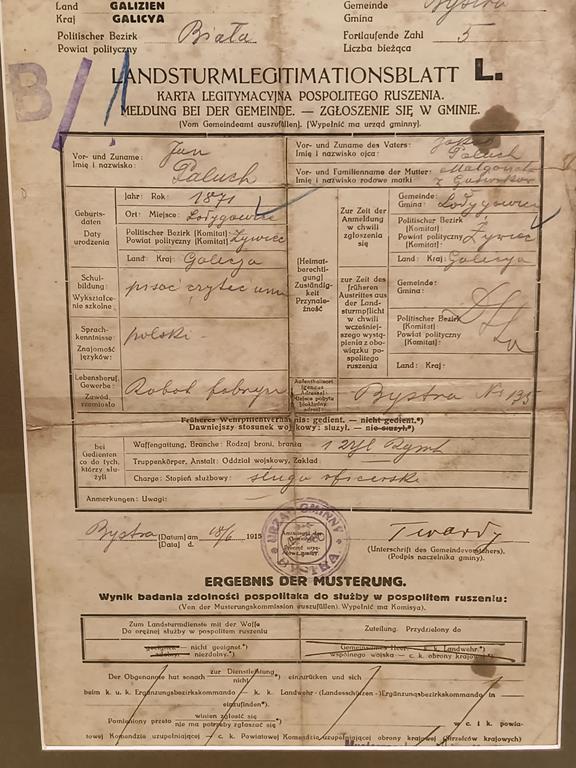 Land GALIZIEN Gemeinde Bystra
Kraj GALICYA Gmina
Politischer Bezirk Biała Fortlaufende Zahl 5
Powiat polityczny Liczba bieżąca
B/1
LANDSTURMLEGITIMATIONSBLATT L.
KARTA LEGITYMACYJNA POSPOLITEGO RUSZENIA.
MELDUNG BEI DER GEMEINDE. — ZGŁOSZENIE SIĘ W GMINIE.
(Vom Gemeindeamt auszufüllen). (Wypełnić ma urząd gminny).
Vor- und Zuname: Jan Paluch
Imię i nazwisko:
Vor- und Zuname des Vaters: Paluch
Imię i nazwisko ojca:
Vor- und Familienname der Mutter: Małgorzata
Imię i nazwisko rodowe matki: z
Geburts-
daten
Daty
urodzenia
Jahr: Rok: 1871
Ort: Miejsce: Łodygowice
Politischer Bezirk (Komitat): Żywiec
Powiat polityczny (Komitat):
Land: Kraj: Galicja
Schul-
bildung:
Wykształce-
nie szkolne:
pisać czytać umie
Sprach-
kenntnisse:
Znajomość
języków:
polski
Lebensberuf,
Gewerbe:
Zawód,
rzemiosło
Robot. fabryn
(Heimat-
berechti-
gung)
Zuständig-
keit
Przynale-
żność
Zur Zeit der
Anmeldung
w chwili
zgłoszenia
się
Gemeinde:
Gmina: Łodygowice
Politischer Bezirk
(Komitat)
Powiat polityczny Żywiec
(Komitat):
Land: Kraj: Galicja
zur Zeit des
früheren
Austrittes aus
der Land-
sturmpflicht
w chwili
wcześniej-
szego wystą-
pienia z obo-
wiązku po-
spolitego
ruszenia
Gemeinde:
Gmina:
Politischer Bezirk
(Komitat)
Powiat polityczny
(Komitat):
Land: Kraj:
Aufenthaltsort
(genaue
Adresse):
Miejsce pobytu
(dokładny
adres):
Bystra Nr 193
Früheres Wehrpflichtverhältnis: gedient. — nicht gedient.*)
Dawniejszy stosunek wojskowy: służył. — nie służył.*)
bei
Gedienten
co do tych,
którzy słu-
żyli
Waffengattung, Branche: Rodzaj broni, branża
Truppenkörper, Anstalt: Oddział wojskowy, Zakład
Charge: Stopień służbowy: sługa oficerski
Anmerkungen: Uwagi:
Bystra (Datum) am 18/6 1915 Twardy
(Data) d. (Unterschrift des Gemeindevorstehers).
(Podpis naczelnika gminy).
URZĄD GMINNY BYSTRA
ERGEBNIS DER MUSTERUNG.
Wynik badania zdolności pospolitaka do służby w pospolitem ruszeniu:
(Von der Musterungskommission auszufüllen). Wypełnić ma Komisya).
Zum Landsturmdienste mit der Waffe
Do orężnej służby w pospolitem ruszeniu
Zuteilung. Przydzielony do
geeignet — nicht geeignet.*)
niezdolny.*)
Gemeinsames Heer — k. k. Landwehr.*)
wspólnego wojska — c. k. obrony krajowej*)
Der Obgenannte hat sonach zur Dienstleistung nicht*) einzurücken und sich
beim k. u. k. Ergänzungsbezirkskommando — k. k. Landwehr-(Landesschützen-)Ergänzungsbezirkskommando in
einzufinden*).
Pomieniony przeto winien zgłosić się
nie ma potrzeby zgłosić*) w c. i k. powia-
towej Komendzie uzupełniającej — c. k. Powiatowej Komendzie uzupełniającej obrony krajowej (Strzelców krajowych)